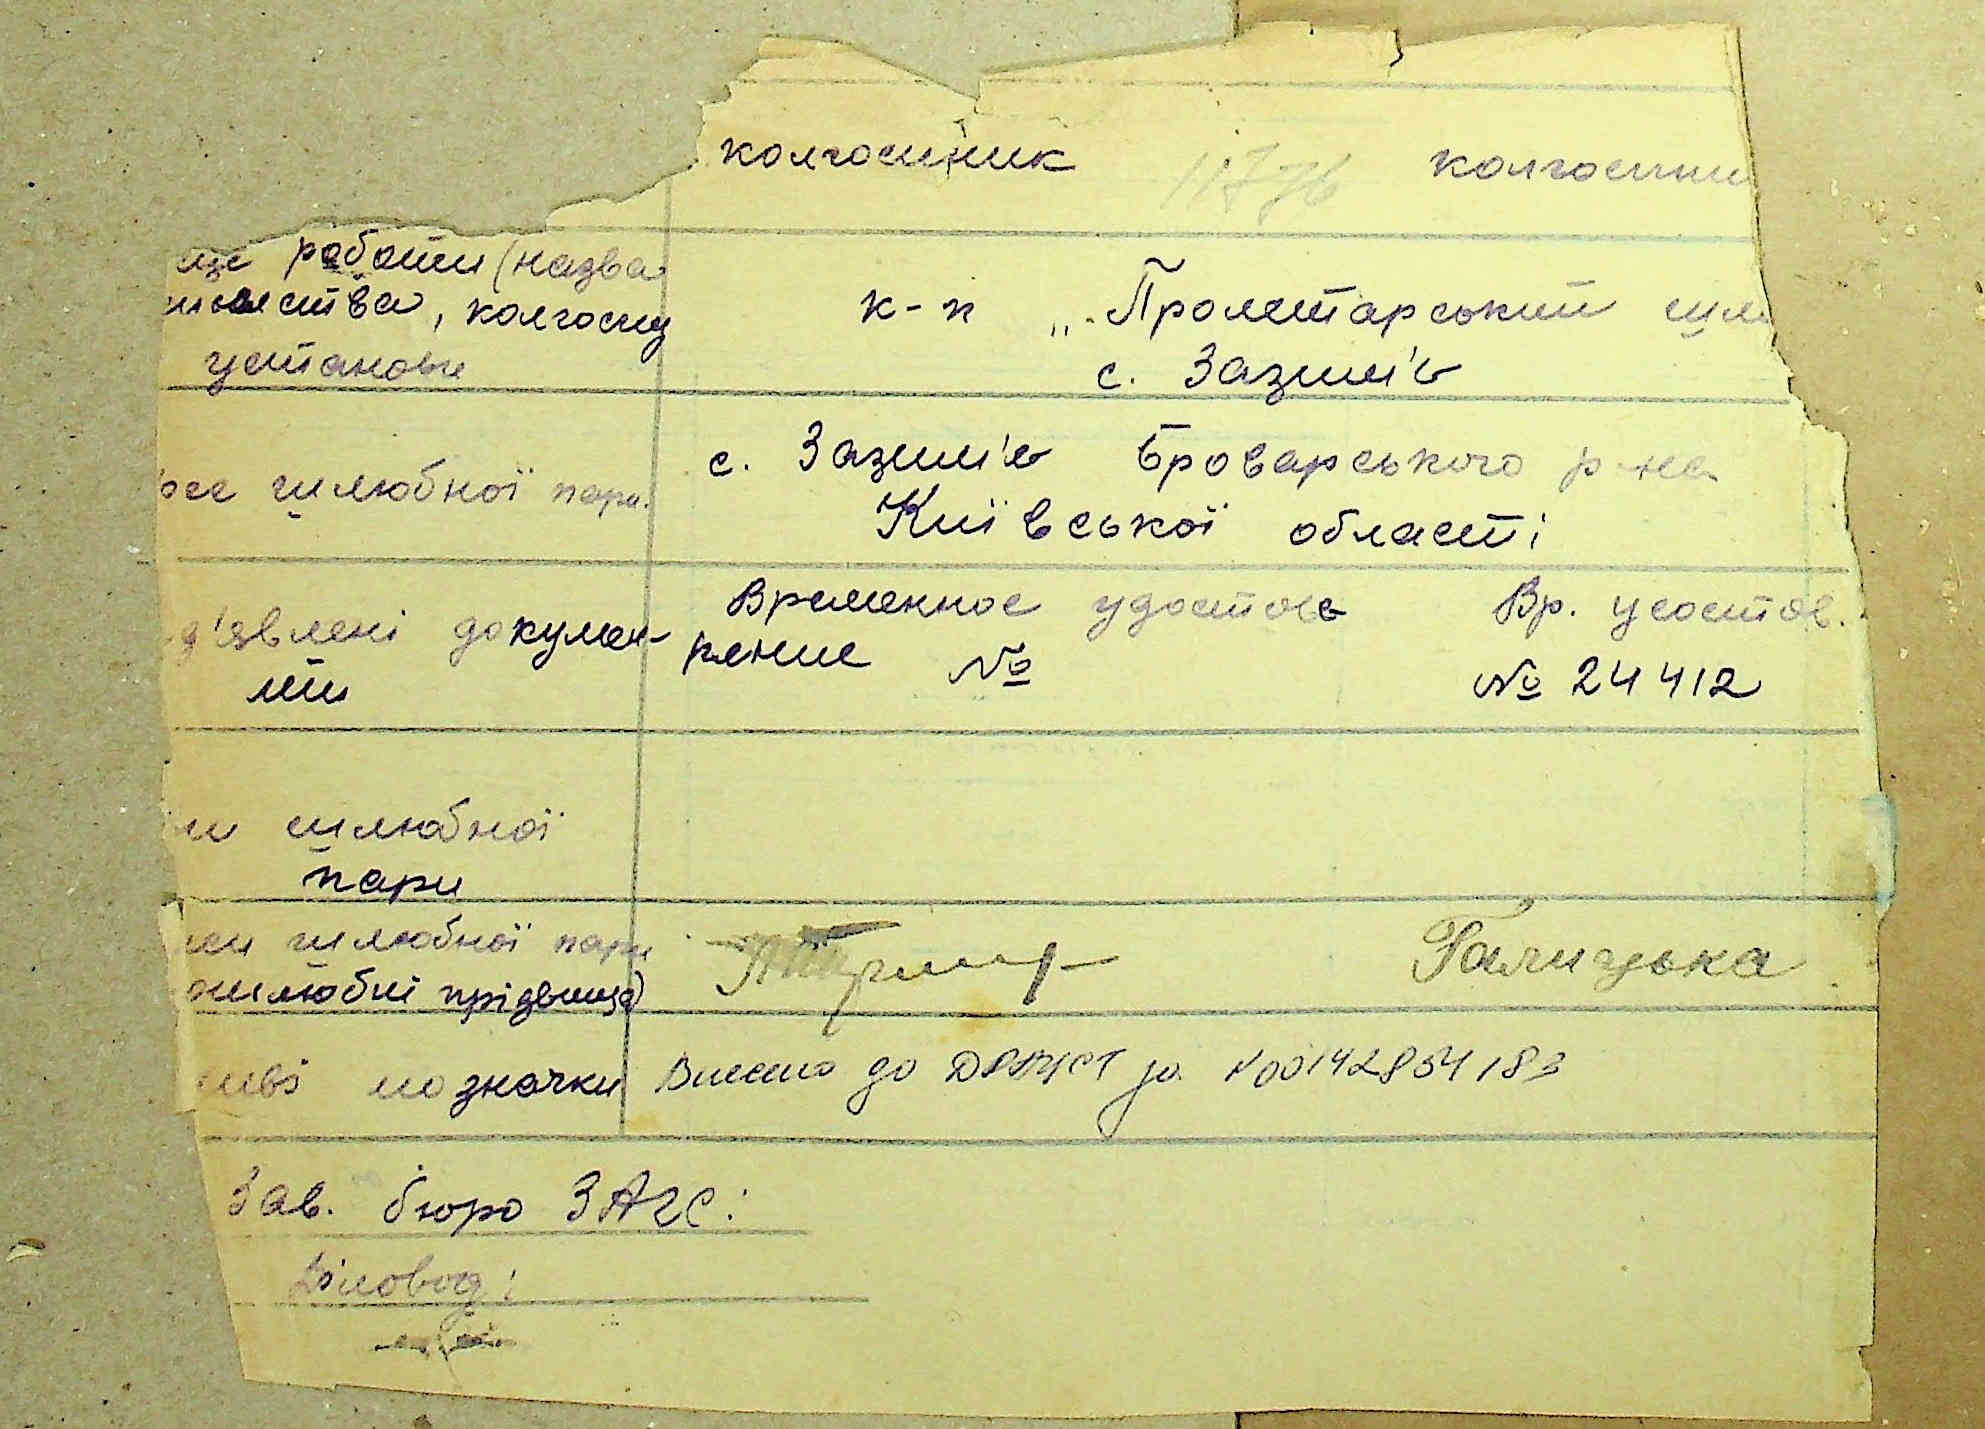 колгоспник колгоспни
11776
ще роботи (назва
иємства, колгоспу
установи
к-п „Пролетарський шля
с. Зазим'є
рес шлюбної пари.
с. Зазим'є Броварського р-на
Київської області
д'явлені докумен-
ти
Временное удостове
рение №
Вр. удостов.
№ 24412
ми шлюбної
пари
иси шлюбної пари
ошлюбні прізвища)
Галицька
иві позначки
Внесено до ДРАЦСГ за №00142854183
Зав. бюро ЗАГС:
Діловод: